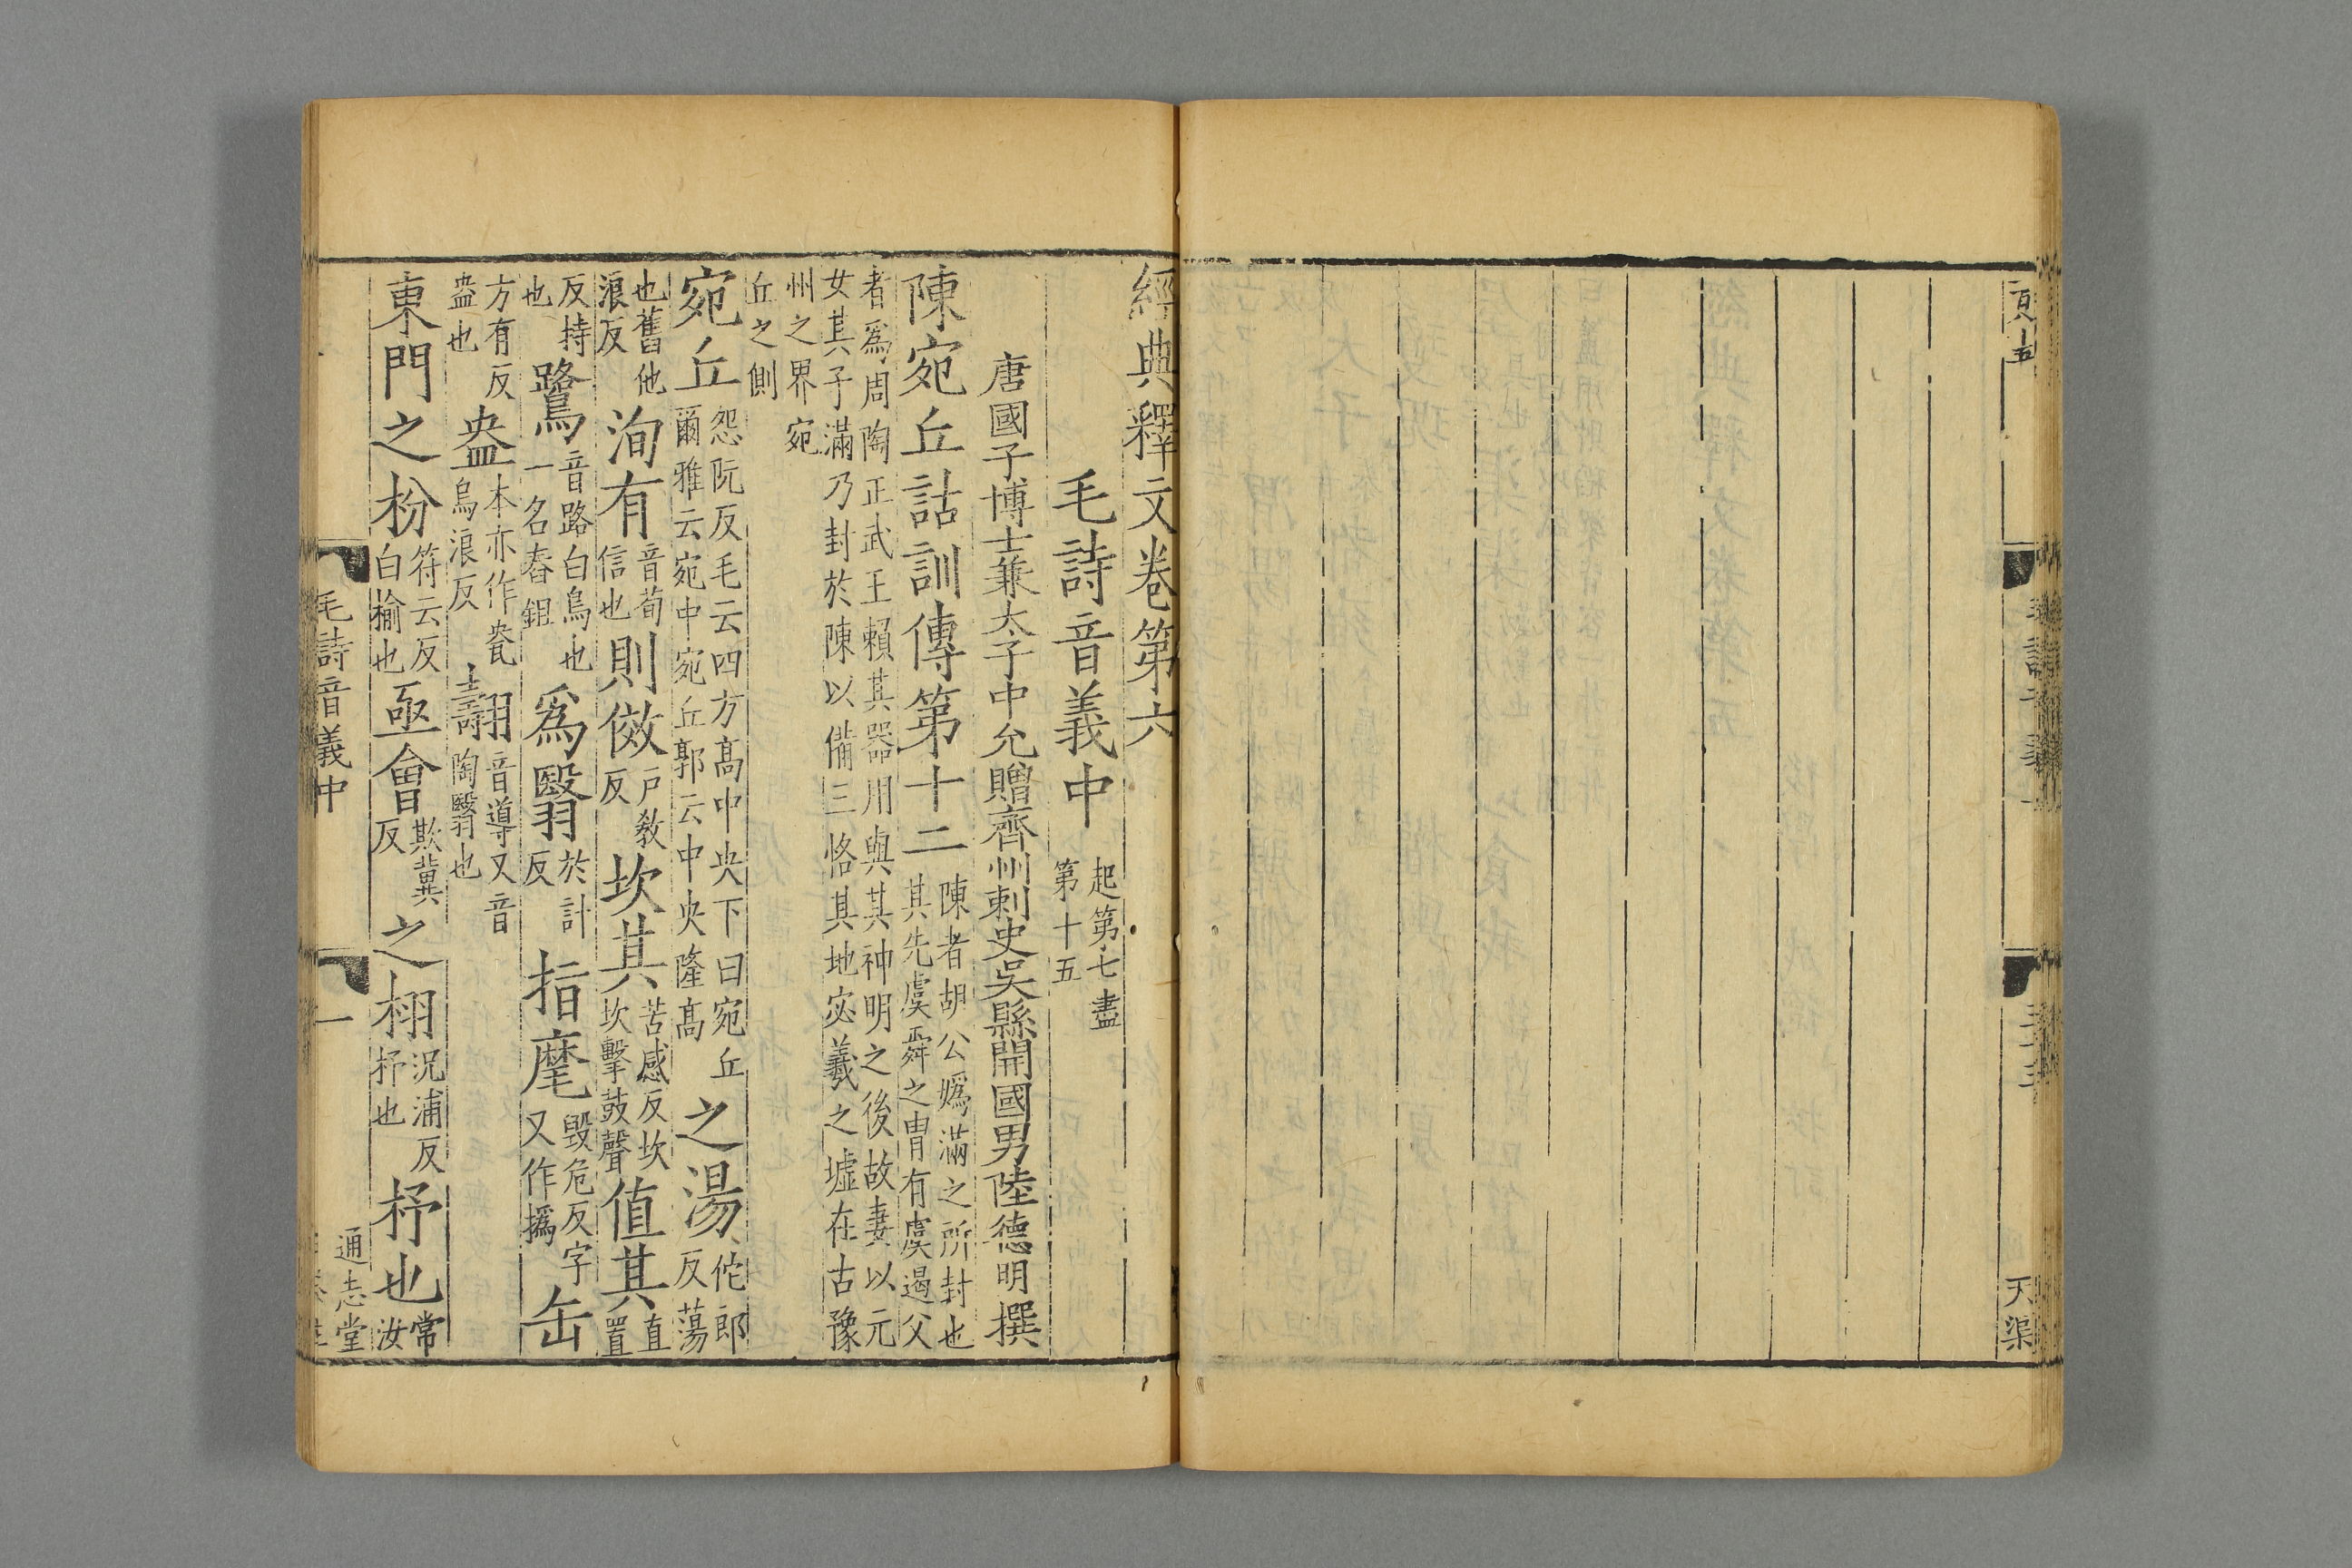 經典釋文卷第六
毛詩音義中 起第七盡第十五
唐國子博士兼太子中允贈齊州刺史吳縣開國男陸德明撰
陳宛丘詁訓傳第十二 陳者胡公嬀滿之所封也其先虞舜之冑有虞遏父
者爲周陶正武王賴其器用與其神明之後故妻以元女其子滿乃封於陳以備三恪其地宓羲之墟在古豫
州之界宛丘之側
宛丘 怨阮反毛云四方高中央下曰宛丘爾雅云宛中宛丘郭云中央隆高 之湯 佗郎反蕩
也舊他浪反 洵有 音荀信也 則傚 戶教反 坎其 苦感反坎坎擊鼓聲 值其 直置
反持也 鷺 音路白鳥也一名舂鉏 爲翳 於計反 指麾 毀危反字又作撝 缶
方有反盎也 盎 本亦作㼜烏浪反 翿 音導又音陶翳也
東門之枌 符云反白榆也 亟會 欺冀反 之栩 況浦反杼也 杼也 常汝
毛詩音義中
一
通志堂
天渠